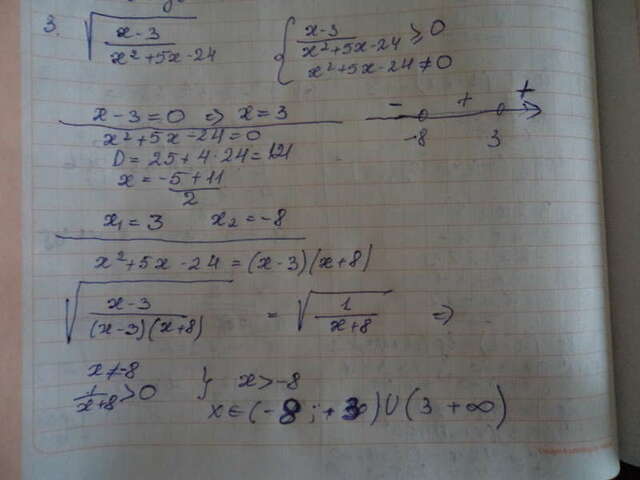 3. √((x-3)/(x²+5x-24)) { (x-3)/(x²+5x-24) ≥ 0
x²+5x-24≠0
x-3=0 ⇒ x=3
- + +
-8 3
x²+5x-24=0
D=25+4·24=121
x=(-5+11)/2
x₁=3 x₂=-8
x²+5x-24=(x-3)(x+8)
√((x-3)/((x-3)(x+8))) = √(1/(x+8)) ⇒
x≠-8
1/(x+8)>0 } x>-8
x∈(-8;+3)∪(3 +∞)